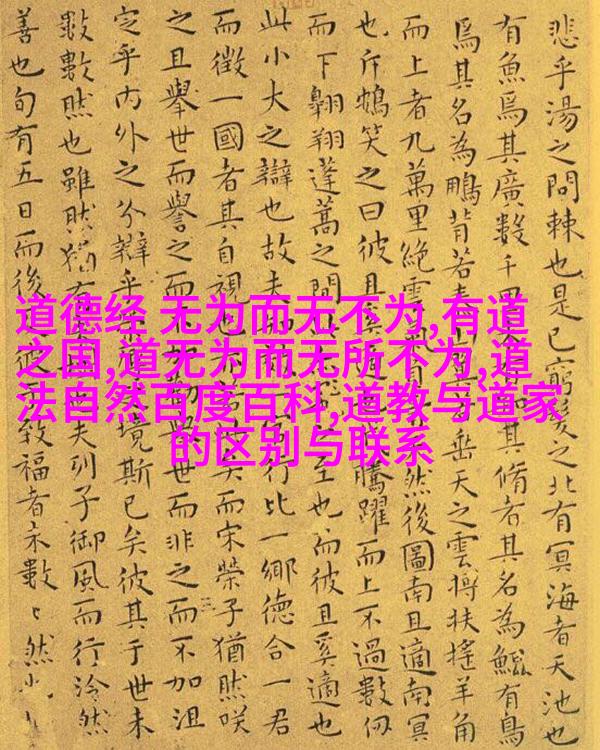 道德经 无为而无不为,有道
之国,道无为而无所不为,道
法自然百度百科,道教与道家
的区别与联系
悲乎湯之問棘也是已窮髮之北有冥海者天池也
有魚焉其廣數千里知其脩者其名為鯤有鳥
焉其名為鵬背若垂天之雲摶扶搖羊角
而上者九萬里絕雲氣然後圖南且適南冥
也斥鴳笑之曰彼且奚適也騰躍而上不過數仞
而下翱翔蓬蒿之間至也而彼且奚適也
此小大之辯也故夫行比一鄉德合一君
而徵一國者其自視也矣而宋榮子猶然咲
之且舉世而譽之而不加勸舉世而非之而不加沮
定乎內外之分辯乎境斯已矣彼其于世未
數數然也雖然猶有也夫列子御風而行泠然
善也旬有五日而後彼致福者未數々然